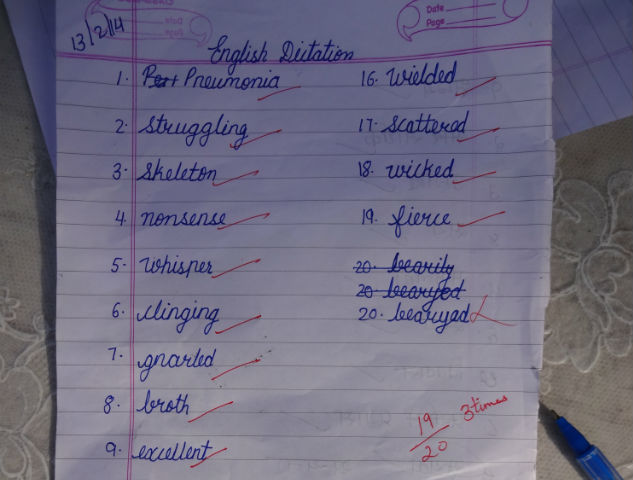 13/2/14
Date
Page
English Dictation
1. Pneumonia
2. struggling
3. skeleton
4. nonsense
5. whisper
6. clinging
7. gnarled
8. broth
9. excellent
16. wielded
17. scattered
18. wicked
19. fierce
20. bearily
20 bearyed
20. bearyad
19/20
3 times